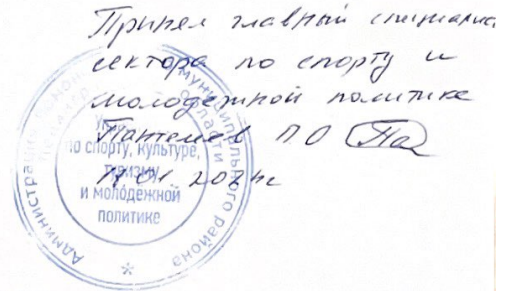 Принял главный специалис
сектора по спорту и
молодежной политике
Пантелеев П.О
01.2024г
Администрация
муниципального района
области
по спорту, культуре,
туризму
и молодежной
политике